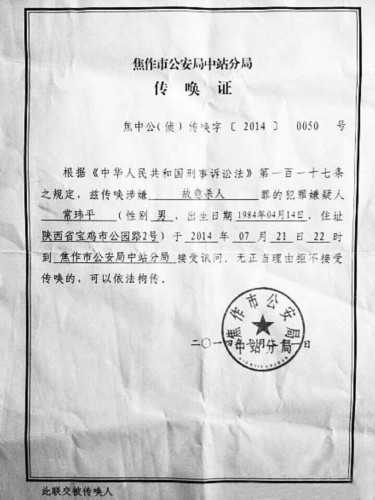 焦作市公安局中站分局
传唤证
焦中公(侦)传唤字〔2014〕0050 号
根据《中华人民共和国刑事诉讼法》第一百一十七条
之规定，兹传唤涉嫌 故意杀人 罪的犯罪嫌疑人
常玮平 (性别 男，出生日期 1984年04月14日，住址
陕西省宝鸡市公园路2号) 于 2014 年 07 月 21 日 22 时
到 焦作市公安局中站分局 接受讯问。无正当理由拒不接受
传唤的，可以依法拘传。
焦作市公安局
中站分局
二〇一四年七月 十一日
此联交被传唤人